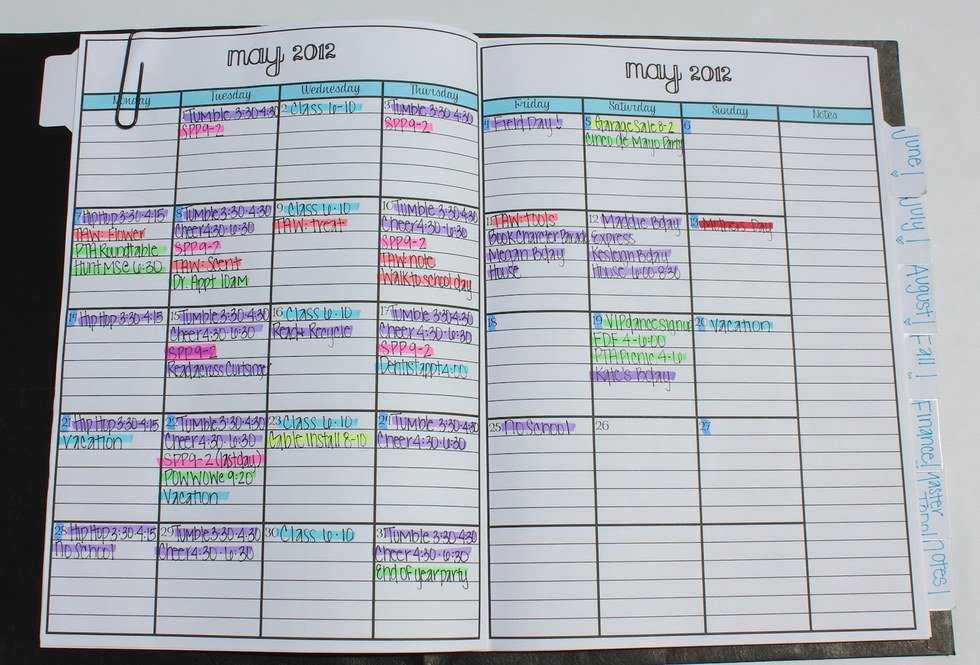 may 2012
Monday Tuesday Wednesday Thursday
1 Tumble 3:30-4:30
SPP 9-2
2 Class 6-10
3 Tumble 3:30-4:30
SPP 9-2
7 Hip Hop 3:30-4:15
TAW: Flower
PTA Roundtable
Hunt MSE 6:30
8 Tumble 3:30-4:30
Cheer 4:30-6:30
SPP 9-2
TAW: Scent
Dr. Appt 10am
9 Class 6-10
TAW: treat
10 Tumble 3:30-4:30
Cheer 4:30-6:30
SPP 9-2
TAW note
Walk to school day
14 Hip Hop 3:30-4:15
15 Tumble 3:30-4:30
Cheer 4:30-6:30
SPP 9-2
Read across
16 Class 6-10
Read & Recycle
17 Tumble 3:30-4:30
Cheer 4:30-6:30
SPP 9-2
Dentist appt 4:00
21 Hip Hop 3:30-4:15
Vacation
22 Tumble 3:30-4:30
Cheer 4:30-6:30
SPP 9-2 (last day)
POW WOW 9:20
Vacation
23 Class 6-10
Cable Install 8-10
24 Tumble 3:30-4:30
Cheer 4:30-6:30
28 Hip Hop 3:30-4:15
No School
29 Tumble 3:30-4:30
Cheer 4:30-6:30
30 Class 6-10
31 Tumble 3:30-4:30
Cheer 4:30-6:30
End of year party
may 2012
Friday Saturday Sunday Notes
4 Field Day!
5 Garage Sale 8-2
Cinco de Mayo Party
6
11 TAW: tools
Book Character Parade
Megan Bday
House
12 Maddie Bday
Express
Kesleigh Bday
House 6:00-8:30
13 Mothers Day
18
19 VIP dance signup
FDF 4-6:00
PTA Picnic 4-6
Kate's Bday
20 Vacation
25 No School
26
27
June
July
August
Fall
Finance
Master
Notes